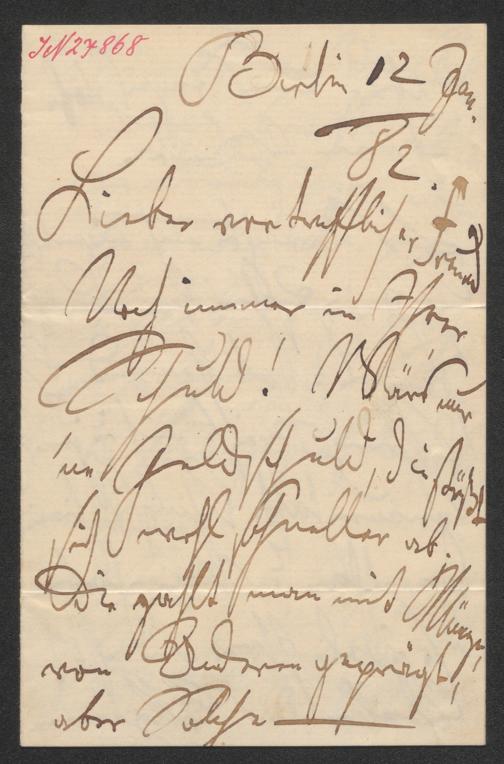 IN 27868
Berlin 12 Jan.
82
Lieber vortrefflicher Freund
Noch immer in Ihrer
Schuld! Wärs nur
'ne Geldschuld, die
sich wohl schneller ab.
Die zahlt man mit Münze,
von Anderen geprägt,
aber Solche —